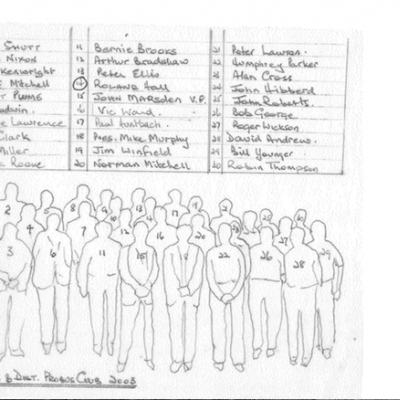 SHUTT 11 Bernie Brooks 21 Peter Lawton
NIXON 12 Arthur Bradshaw 22 Humphrey Parker
13 Peter Ellis 23 Alan Cross
Mitchell 14 Roland Hall 24 John Hibberd
PLUMB 15 JOHN MARSDEN V.P. 25 John Roberts
16 Vic Ward 26 Bob George
Lawrence 17 Paul Huntbach 27 Roger Wesson
Clark 18 Pres. Mike Murphy 28 David Andrews
Miller 19 Jim Winfield 29 Bill Younger
20 Norman Mitchell 30 Robin Thompson
2 8 9 13 17
4 7 12 16 20 27 29
3 6 11 15 22 26 28
& DIST. PROBUS CLUB 2003